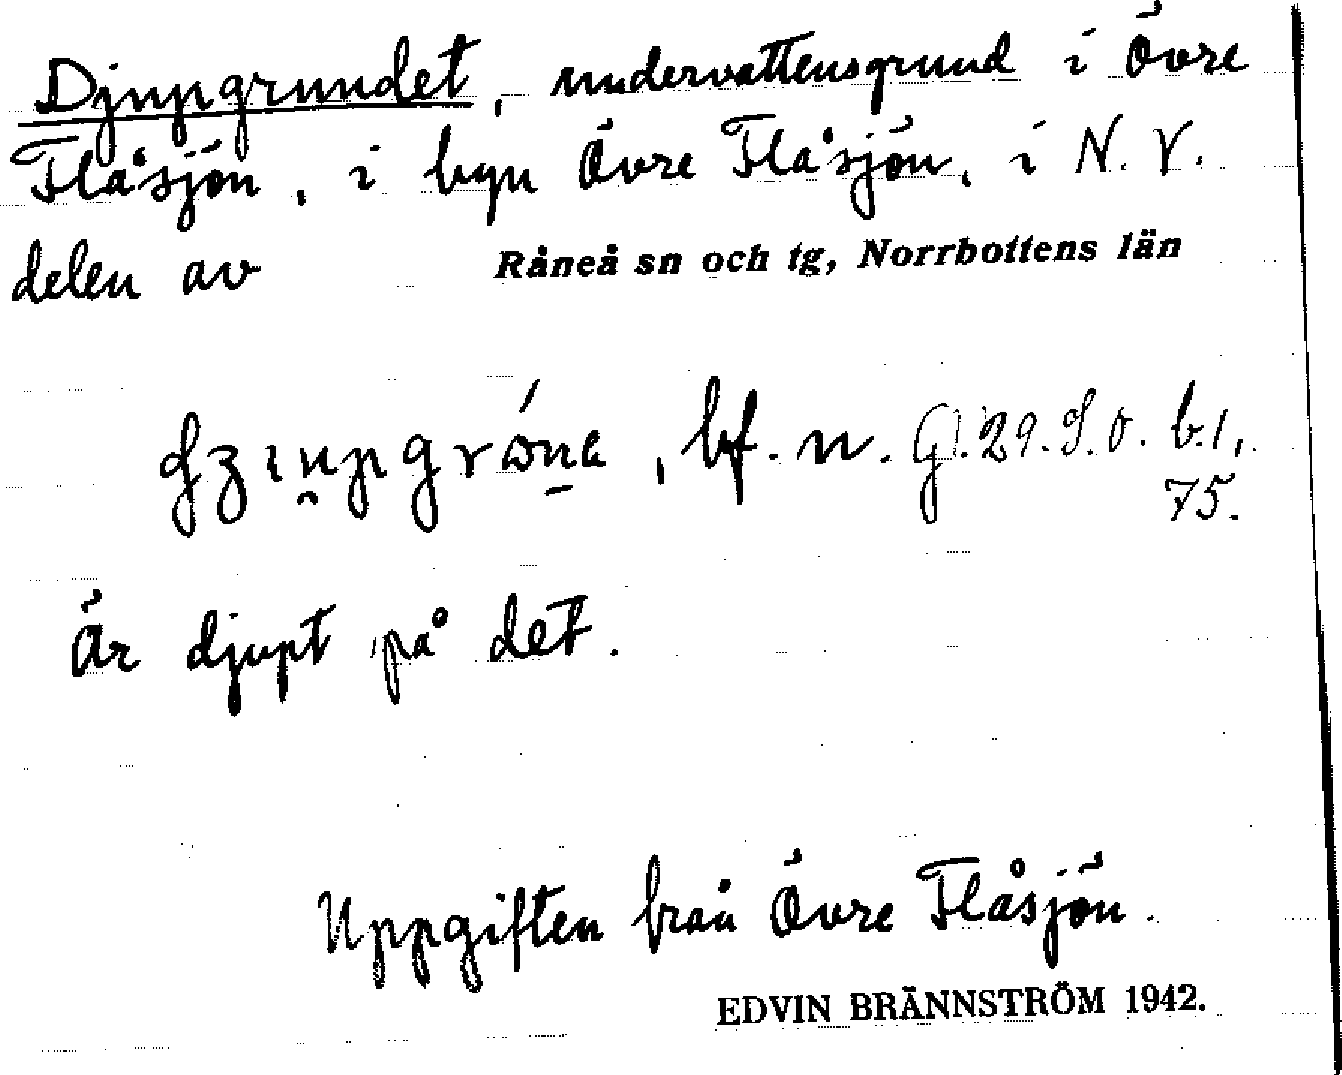 Djupgrundet, undervattensgrund i Övre
Flåsjön, i byn Övre Flåsjön, i N.V.
delen av Råneå sn och tg, Norrbottens län
bf. n. G. 29. S. O. b. 1,
75.
Är djupt på det.
Uppgiften från Övre Flåsjön.
EDVIN BRÄNNSTRÖM 1942.